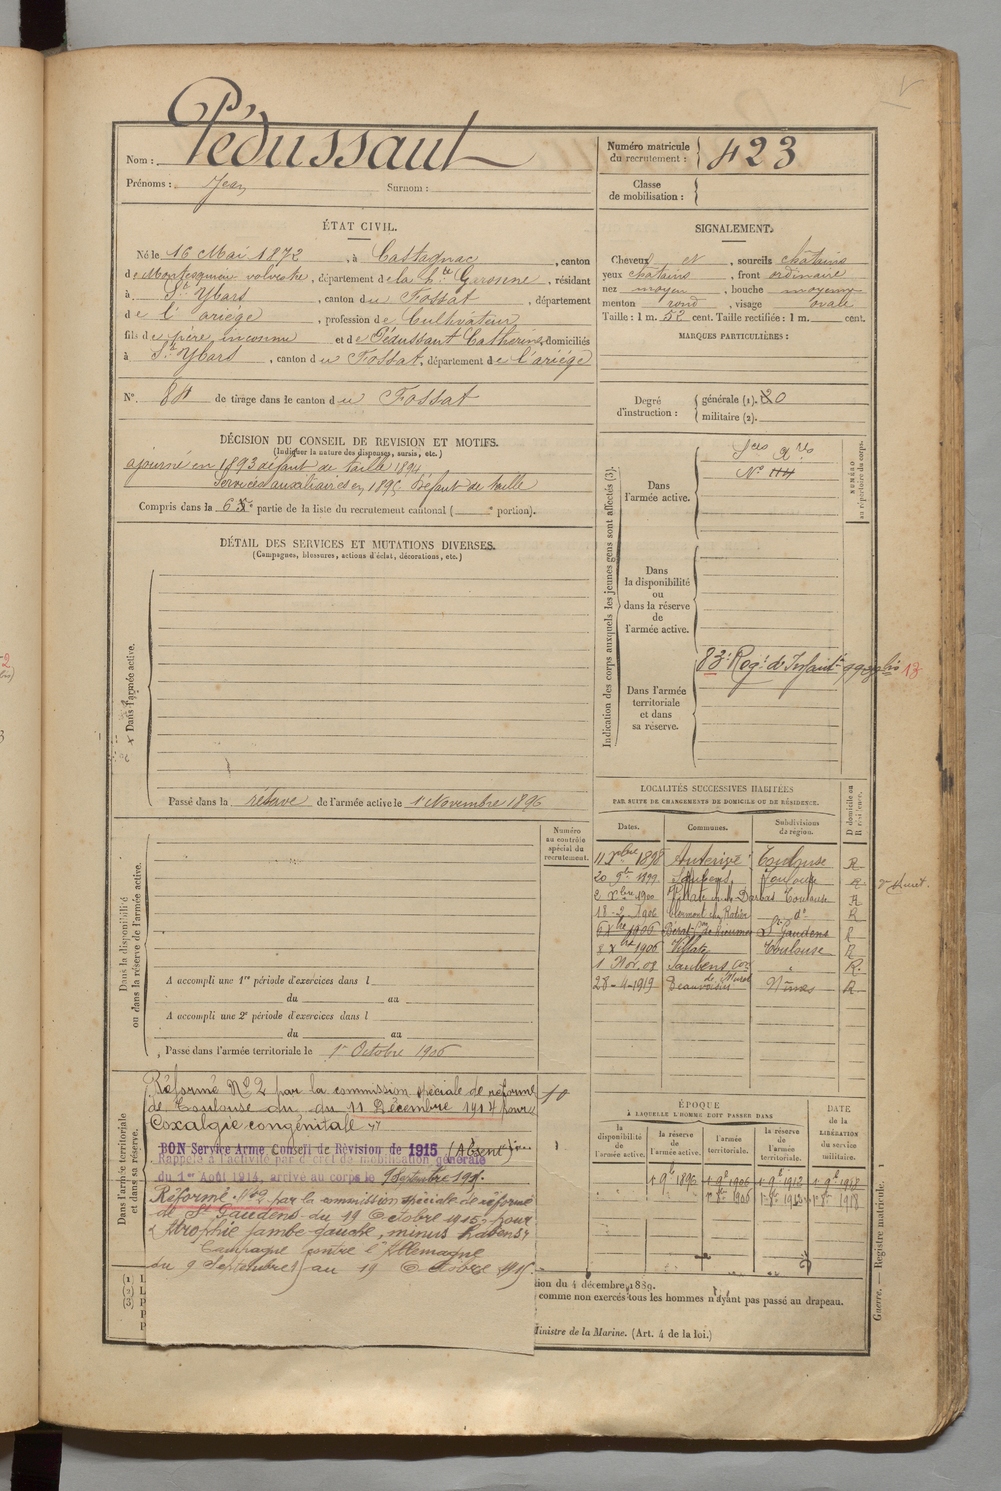 Pédussaut
Nom :
Prénoms : Jean Surnom :
Numéro matricule du recrutement : 423
Classe de mobilisation :
ÉTAT CIVIL.
Né le 16 Mai 1872, à Castagnac, canton
de Montesquieu volvestre, département de la Hte Garonne, résidant
à St Ybars, canton du Fossat, département
de l'ariége, profession de Cultivateur
fils de père inconnu et de Pédussaut Catherine, domiciliés
à St Ybars, canton du Fossat, département de l'ariége
N° 84 de tirage dans le canton du Fossat
SIGNALEMENT.
Cheveux et, sourcils châtains
yeux châtains, front ordinaire
nez moyen, bouche moyenne
menton rond, visage ovale
Taille : 1 m. 52 cent. Taille rectifiée : 1 m. cent.
MARQUES PARTICULIÈRES :
Degré d'instruction : générale (1). 0
militaire (2).
DÉCISION DU CONSEIL DE REVISION ET MOTIFS.
(Indiquer la nature des dispenses, sursis, etc.)
ajourné en 1893 défaut de taille 1894
Services auxiliaires en 1895 Défaut de taille
Compris dans la 6e partie de la liste du recrutement cantonal ( portion).
DÉTAIL DES SERVICES ET MUTATIONS DIVERSES.
(Campagnes, blessures, actions d'éclat, décorations, etc.)
Dans l'armée active.
Passé dans la réserve de l'armée active le 1 Novembre 1896
Indication des corps auxquels les jeunes gens sont affectés (3).
NUMÉRO au répertoire du corps.
Dans l'armée active.
N°
Dans la disponibilité ou dans la réserve de l'armée active.
83e Regt d'Infant
13
Dans l'armée territoriale et dans sa réserve.
Numéro au contrôle spécial du recrutement.
Dans la disponibilité ou dans la réserve de l'armée active.
A accompli une 1re période d'exercices dans l
du au
A accompli une 2e période d'exercices dans l
du au
Passé dans l'armée territoriale le 1er Octobre 1906
LOCALITÉS SUCCESSIVES HABITÉES
PAR SUITE DE CHANGEMENTS DE DOMICILE OU DE RÉSIDENCE.
Dates. Communes. Subdivisions de région. D domicile ou R résidence.
11 Xbre 1898 Auterive Toulouse R
20 9bre 1899 Saubens Toulouse R
2 Xbre 1900 Toulouse R
18-2-1906 Clermont chez Ratier do R
6 Xbre 1906 St Gaudens R
8 Xbre 1906 Villate Toulouse R
1 Nov. 08 Saubens " R.
28-4-1919 Beauvoisin Nîmes R
Dans l'armée territoriale et dans sa réserve.
Réformé N° 2 par la commission spéciale de réforme
de Toulouse du du 11 Décembre 1914 pour
Coxalgie congénitale
10
BON Service Armé Conseil de Révision de 1915 (Absent)
Rappelé à l'activité par décret de mobilisation générale
du 1er Août 1914, arrivé au corps le 9 Septembre 1915.
Réformé N° 2 par la commission spéciale de réforme
de St Gaudens du 19 Octobre 1915 pour
Atrophie jambe gauche, minus habens
Campagne contre l'Allemagne
du 9 Septembre au 19 Octobre 1915.
ÉPOQUE
À LAQUELLE L'HOMME DOIT PASSER DANS
DATE DE LA LIBÉRATION du service militaire.
la disponibilité de l'armée active. la réserve de l'armée active. l'armée territoriale. la réserve de l'armée territoriale.
1 9bre 1896 1 9bre 1906 1 9bre 1912 1 9bre 1918
1er 8bre 1906 1 8bre 1918
tion du 4 décembre 1889.
comme non exercés tous les hommes n'ayant pas passé au drapeau.
Ministre de la Marine. (Art. 4 de la loi.)
Guerre. — Registre matricule. 1